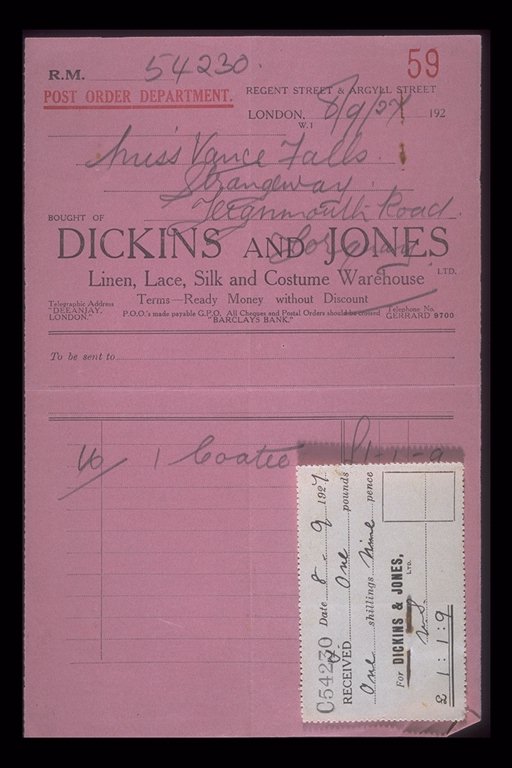 59
R.M. 54230.
POST ORDER DEPARTMENT.
REGENT STREET & ARGYLL STREET
LONDON, W.1 8/9/27 192
Miss Vance Falls
Strangeway
Teignmouth Road.
Torquay.
BOUGHT OF
DICKINS AND JONES LTD.
Linen, Lace, Silk and Costume Warehouse
Terms—Ready Money without Discount
Telegraphic Address "DEEANJAY, LONDON."
P.O.O.'s made payable G.P.O. All Cheques and Postal Orders should be crossed "BARCLAYS BANK."
Telephone No. GERRARD 9700
To be sent to
1 Coatee £1-1-9
C54230 Date 8-9 1927
RECEIVED One pounds
One shillings Nine pence
For DICKINS & JONES, LTD.
£ 1:1:9